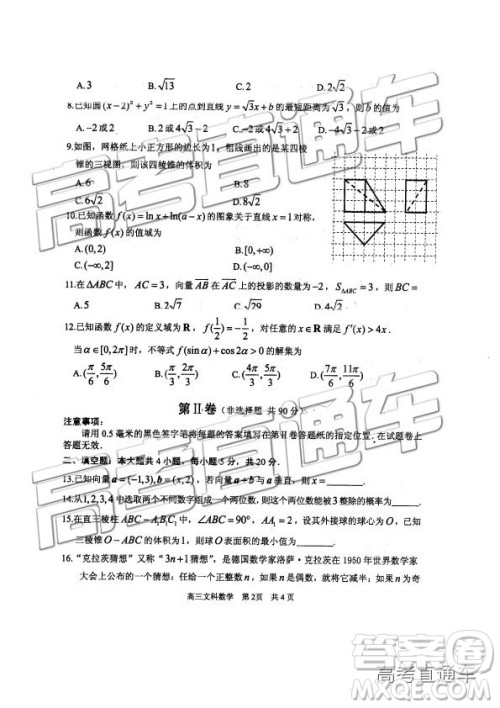 A.3 B.√13 C.2 D.2√2
8.已知圆(x-2)²+y²=1上的点到直线y=√3x+b的最短距离为√3，则b的值为
A.-2或2 B.2或4√3-2 C.-2或4√3+2 D.-4√3-2或2
9.如图，网格纸上小正方形的边长为1，粗线画出的是某四棱
锥的三视图，则该四棱锥的体积为
A.6 B.8
C.6√2 D.8√2
10.已知函数f(x)=lnx+ln(a-x)的图象关于直线x=1对称，
则函数f(x)的值域为
A.(0,2) B.[0,+∞)
C.(-∞,2] D.(-∞,0]
11.在ΔABC中，AC=3，向量AB在AC上的投影的数量为-2，S_{ΔABC}=3，则BC=
A.5 B.2√7 C.√29 D.4√2
12.已知函数f(x)的定义域为R，f(1/2)=-1/2，对任意的x∈R满足f′(x)>4x.
当α∈[0,2π]时，不等式f(sinα)+cos2α>0的解集为
A.(π/6,5π/6) B.(π/3,2π/3) C.(4π/3,5π/3) D.(7π/6,11π/6)
第Ⅱ卷（非选择题 共90分）
注意事项：
请用0.5毫米的黑色签字笔将每题的答案填写在第Ⅱ卷答题纸的指定位置.在试题卷上
答题无效.
二、填空题：本大题共4小题，每小题5分，共20分.
13.已知向量a=(-1,3),b=(x,2)，若向量a+b与
14.从1,2,3,4中选取两个不同数字组成一个两位数，则这个两位数能被3整除的概率为
15.在直三棱柱ABC-A₁B₁C₁中，∠ABC=90°，AA₁=2，设其外接球的球心为O，已知
三棱锥O-ABC的体积为1，则球O表面积的最小值为
16.“克拉茨猜想”又称“3n+1猜想”，是德国数学家洛萨·克拉茨在1950年世界数学家
大会上公布的一个猜想：任给一个正整数n，如果n是偶数，就将它减半；如果n为奇
高三文科数学 第2页 共4页
高考直通车
答案圈
高考直通车
MXQE.COM